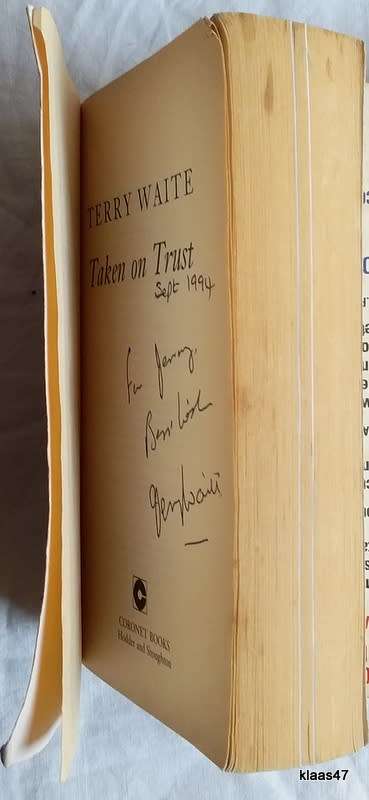 TERRY WAITE
Taken on Trust
Sept 1994
For Jenny,
Best Wishes
Terry Waite
CORONET BOOKS
Hodder and Stoughton
klaas47